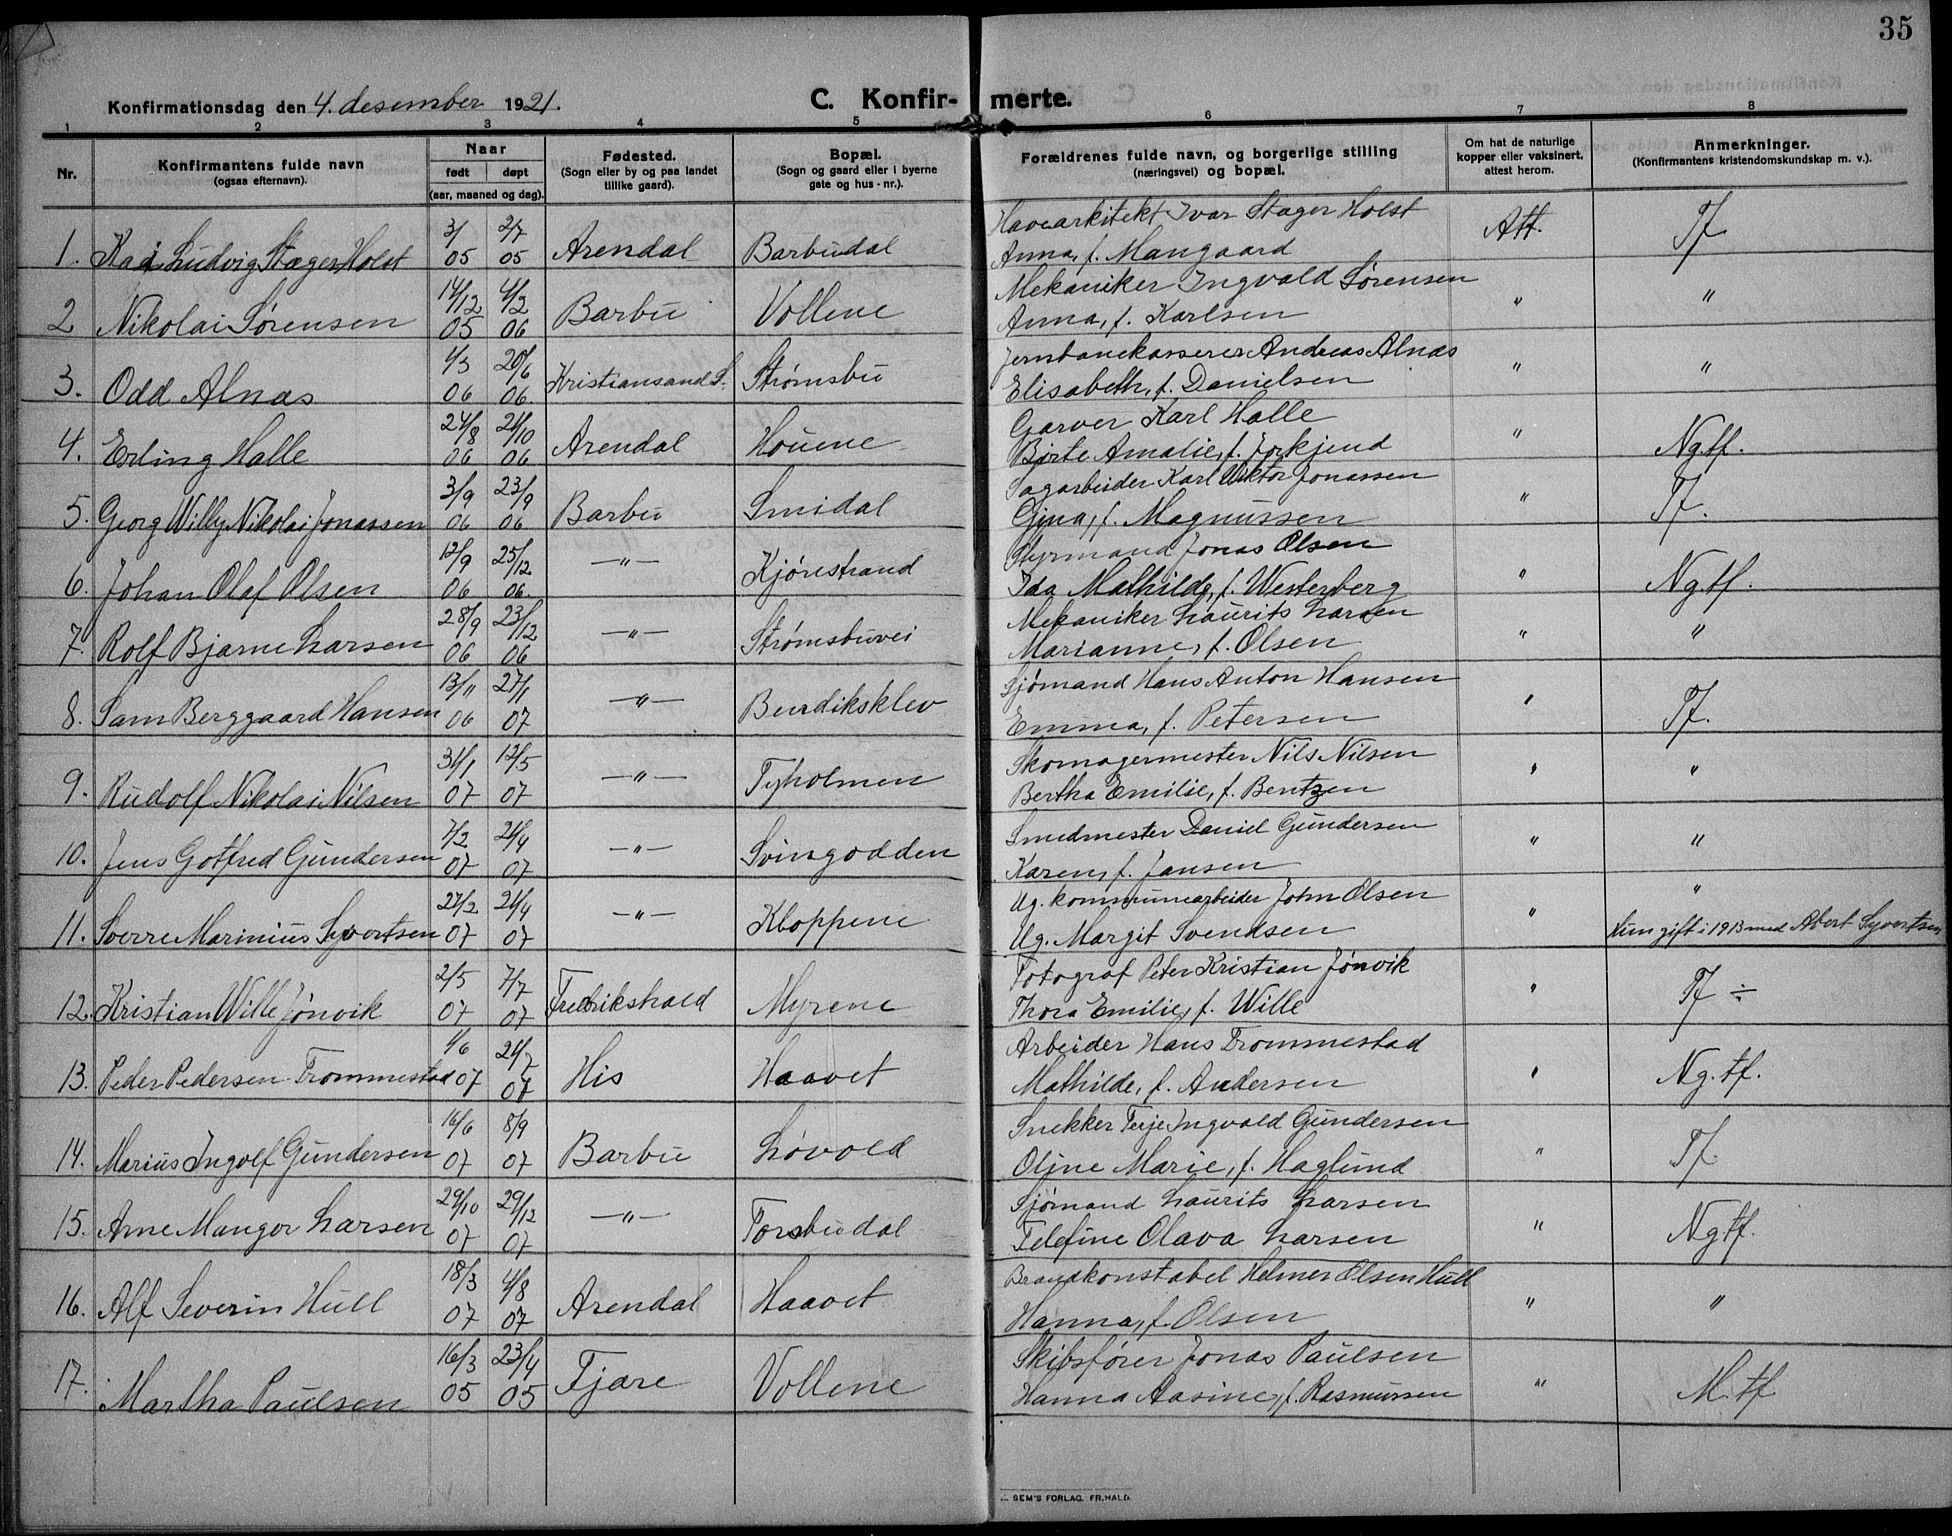 35
Konfirmationsdag den 4. desember 1921.
C. Konfir- merte.
1 2 3 4 5 6 7 8
Nr.
Konfirmantens fulde navn
(ogsaa efternavn).
Naar
født døpt
(aar, maaned og dag).
Fødested.
(Sogn eller by og paa landet
tillike gaard).
Bopæl.
(Sogn og gaard eller i byerne
gate og hus-nr.).
Forældrenes fulde navn, og borgerlige stilling
(næringsvei) og bopæl.
Om hat de naturlige
kopper eller vaksinert,
attest herom.
Anmerkninger.
(Konfirmantens kristendomskundskap m. v.).
3/ 2/7 Havearkitekt Ivar Stager Holst
1. Kai Ludvig Stager Holst 05 05 Arendal Barbudal Anna, f. Mangaard Att. Tf
14/12 4/2 Mekaniker Ingvald Sørensen
2 Nikolai Sørensen 05 06 Barbu Vollene Anna, f. Karlsen " "
4/3 20/6 Jernbanekasserer Andreas Alnæs
3. Odd Alnæs 06 06. Kristiansand S. Strømsbu Elisabeth, f. Danielsen " "
24/8 21/10 Garver Karl Halle
4. Erling Halle 06 06 Arendal Houene Birte Amalie, f. Jorkjend " Ng.tf.
3/9 23/9 Sagarbeider Karl Viktor Jonassen
5. Georg Willy Nikolai Jonassen 06 06 Barbu Smidal Gina, f. Magnussen " Tf.
12/9 25/12 Styrmand Jonas Olsen
6. Johan Olaf Olsen 06 06. —"— Kjørestrand Ida Mathilde, f. Westerberg " Ng.tf.
28/9 23/12 Mekaniker Laurits Larsen
7. Rolf Bjarne Larsen 06 06 —"— Strømsbuvei Marianne, f. Olsen " "
13/11 27/1 Sjømand Hans Anton Hansen
8. Sam Berggaard Hansen 06 07 —"— Bendiksklev Emma, f. Petersen " Tf.
31/1 12/5 Skomagermester Nils Nilsen
9. Rudolf Nikolai Nilsen 07 07 —"— Tyholmen Bertha Emilie, f. Bentzen " "
7/2 21/4 Smedmester Daniel Gundersen
10. Jens Gotfred Gundersen 07 07 —"— Svinodden Karen, f. Jansen " "
27/2 21/4 Ug. kommunearbeider John Olsen "
11. Sverre Marinius Syvertsen 07 07 —"— Kloppene Ug. Margit Svendsen " Hun gift i 1913 med Abert Syvertsen
2/5 7/7 Fotograf Peter Kristian Jønvik
12. Kristian Wille Jønvik 07 07 Fredrikshald Myrene Thora Emilie, f. Wille " Tf ÷
4/6 21/7 Arbeider Hans Trommestad
13. Peder Pedersen Trommestad 07 07 His Haavet Mathilde, f. Andersen " Ng.tf.
16/6 8/9 Snekker Terje Ingvald Gundersen
14. Marius Ingolf Gundersen 07 07 Barbu Løvold Oline Marie, f. Haglund " Tf.
29/10 29/12 Sjømand Laurits Larsen
15. Arne Mangor Larsen 07 07 —"— Torsbudal Telefine Olava Larsen " Ng.tf.
18/3 4/8 Brandkonstabel Helmer Olsen Hull
16. Alf Severin Hull 07 07 Arendal Haavet Hanna, f. Olsen " "
16/3 23/4 Skibsfører Jonas Paulsen
17. Martha Paulsen 05 05 Fjære Vollene Hanna Aasine, f. Rasmussen " M.tf
SEM'S FORLAG, FR.HALD.